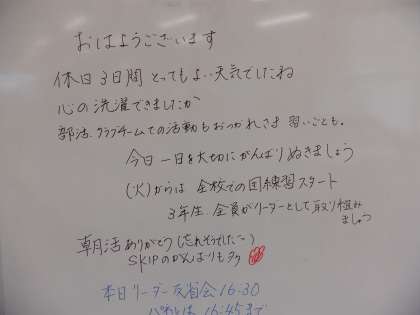 おはようございます
休日3日間 とってもよい天気でしたね
心の洗濯できましたか
部活、クラブチームでの活動もおつかれさま 習いごとも。
今日一日を大切にがんばりぬきましょう
(火)からは 全校での団練習スタート
3年生 全員がリーダーとして取り組み
ましょう
朝活ありがとう(忘れそうでした〜)
SKIPのがんばりも
本日リーダー反省会16:30
16:45まで